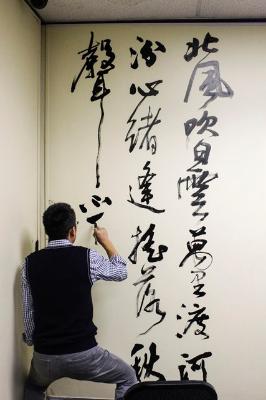 北風吹白雲萬里渡河
汾心緒逢搖落秋
聲不